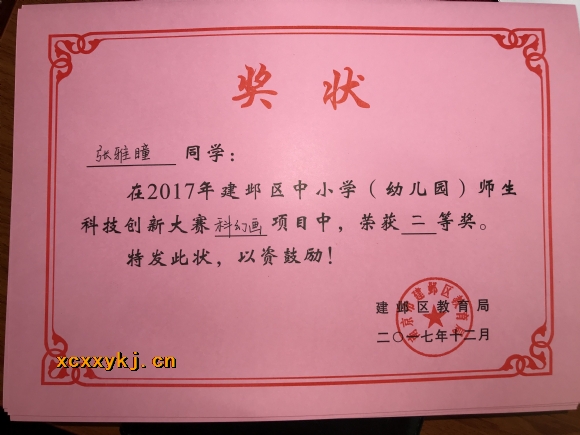 奖状
张雅瞳 同学：
在2017年建邺区中小学（幼儿园）师生
科技创新大赛科幻画项目中，荣获二等奖。
特发此状，以资鼓励！
建邺区教育局
二〇一七年十二月
南京市建邺区教育局
xcxxykj.cn